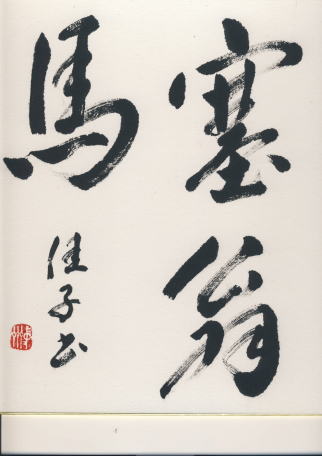 塞翁
馬
佳子书